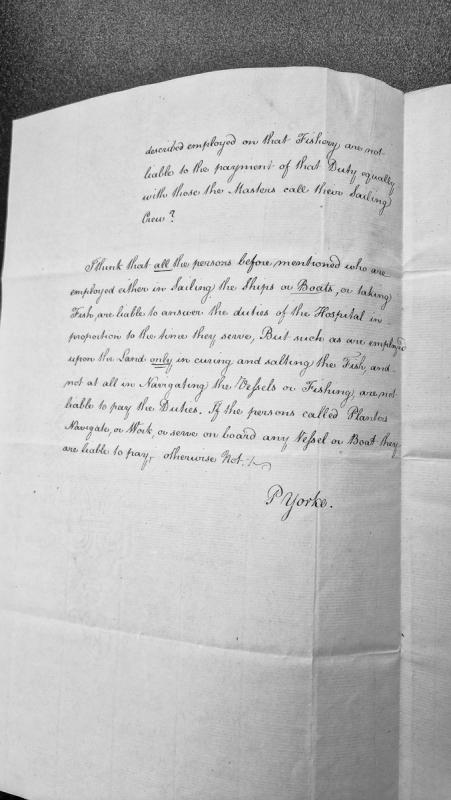 described employed on that Fishery are not
liable to the payment of that Duty equally
with those the Masters call their Sailing
Crew?
I think that all the persons before mentioned who are
employed either in Sailing the Ships or Boats, or taking
Fish, are liable to answer the duties of the Hospital in
proportion to the time they serve, But such as are employed
upon the Land only in curing and salting the Fish, and
not at all in Navigating the Vessels or Fishing, are not
liable to pay the Duties. If the persons called Planters
Navigate, or Work, or serve on board any Vessel or Boat they
are liable to pay, otherwise Not.
P Yorke.